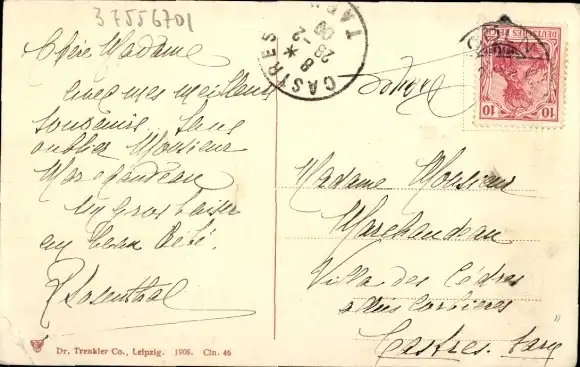 37556701
Chère Madame
avec mes meilleurs
souvenirs, sans
oublier Monsieur
Marchandeau
un gros baiser
au beau Bébé.
Rosenthal
CASTRES
TARN
8 *
28 2
08
DEUTSCHES REICH
10 10
Madame Monsieur
Marchandeau
Villa des Cèdres
Castres. Tarn
Dr. Trenkler Co., Leipzig. 1908. Cln. 46